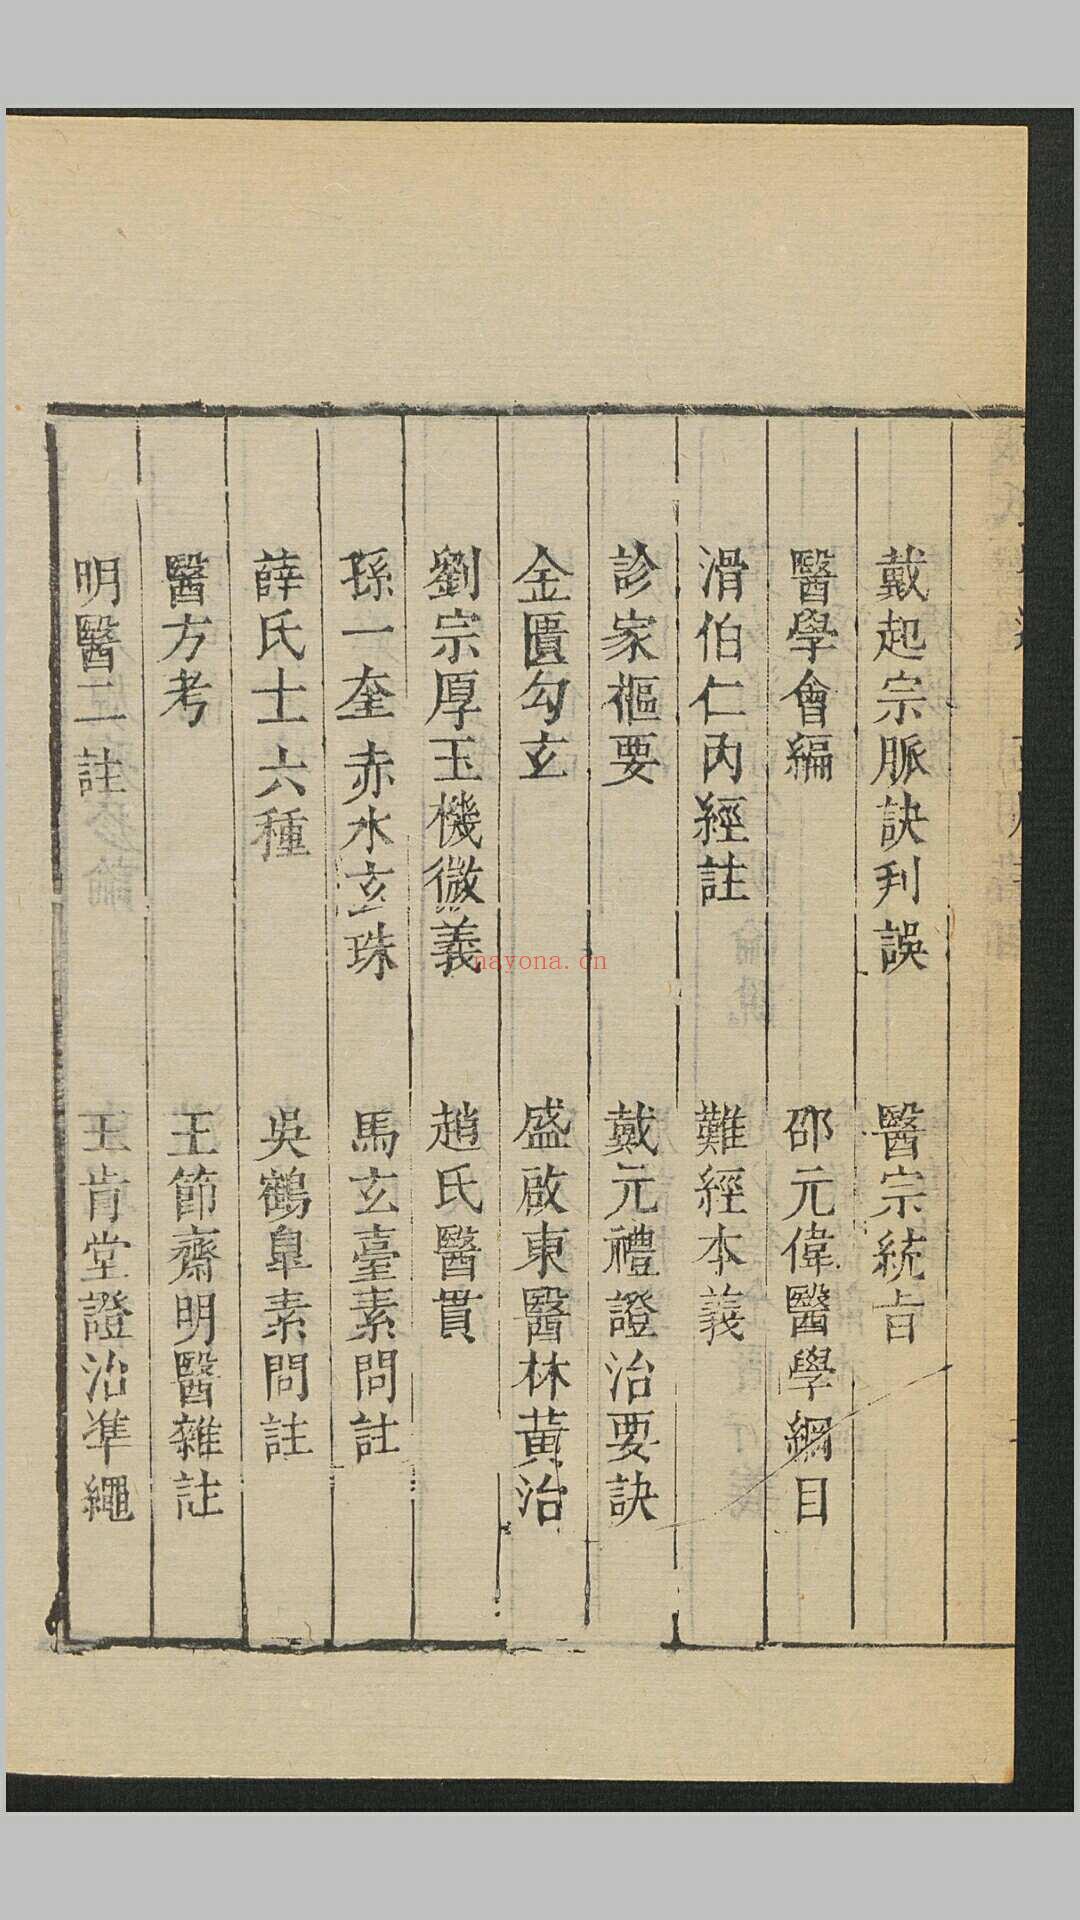 戴起宗脈訣刋誤 醫宗統㫖
醫學會編 邵元偉醫學綱目
滑伯仁内經註 難經本義
診家樞要 戴元禮證治要訣
金匱勾玄 盛啟東醫林黃治
劉宗厚玉機微義 趙氏醫貫
孫一奎赤水玄珠 馬玄臺素問註
薛氏十六種 吳鶴皐素問註
醫方考 王節齋明醫雜註
明醫二註 王肯堂證治凖繩
nayona.cn